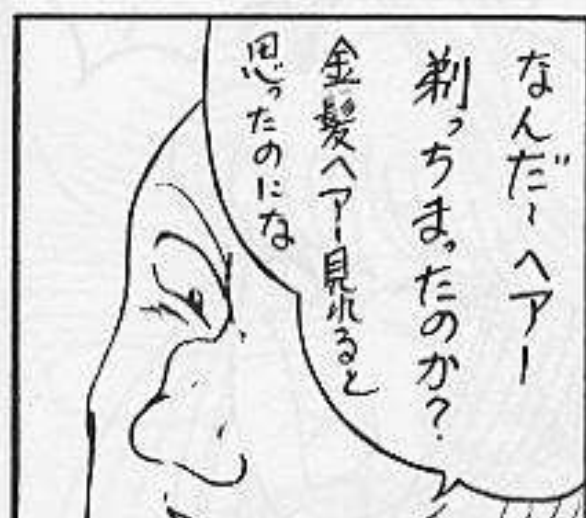 なんだ~ヘアー
剃っちまったのか?
金髪ヘアー見れると
思ったのにな